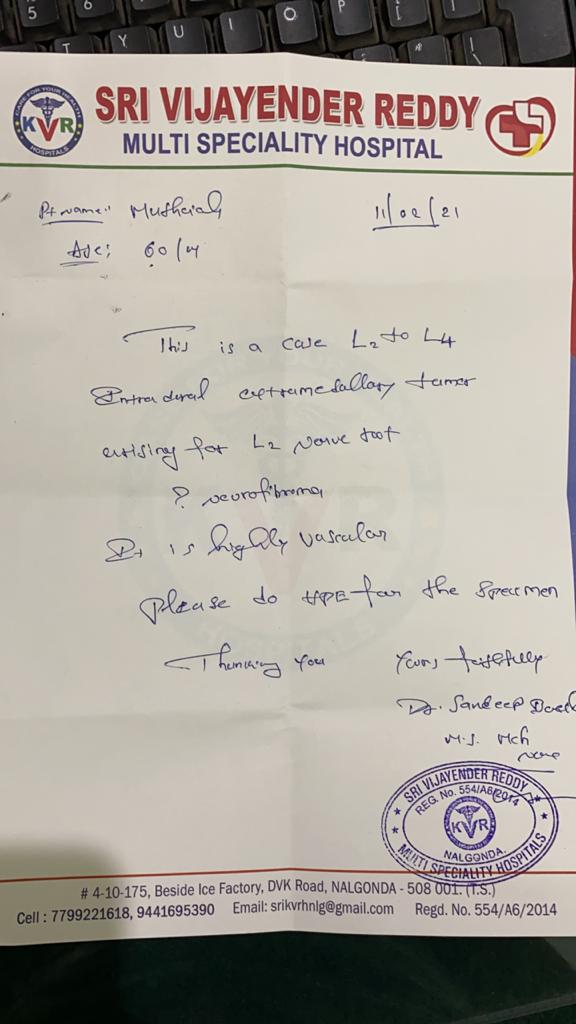 CARE FOR YOUR HEALTH
KVR
HOSPITALS
SRI VIJAYENDER REDDY
MULTI SPECIALITY HOSPITAL
Pt Name:
11/02/21
Age: 60/M
This is a case L2 to L4
Intradural extramedallary tumor
arising for L2 nerve root
? neurofibroma
It is highly vascular
Please do HPE for the specimen
Thanking you
Yours faithfully
Dr. Sandeep
M.S. Mch
SRI VIJAYENDER REDDY
REG. No. 554/A6/2014
KVR
NALGONDA.
MULTI SPECIALITY HOSPITALS
# 4-10-175, Beside Ice Factory, DVK Road, NALGONDA - 508 001. (T.S.)
Cell : 7799221618, 9441695390 Email: srikvrhnlg@gmail.com Regd. No. 554/A6/2014
5
6
T
Y
U
I
O
P